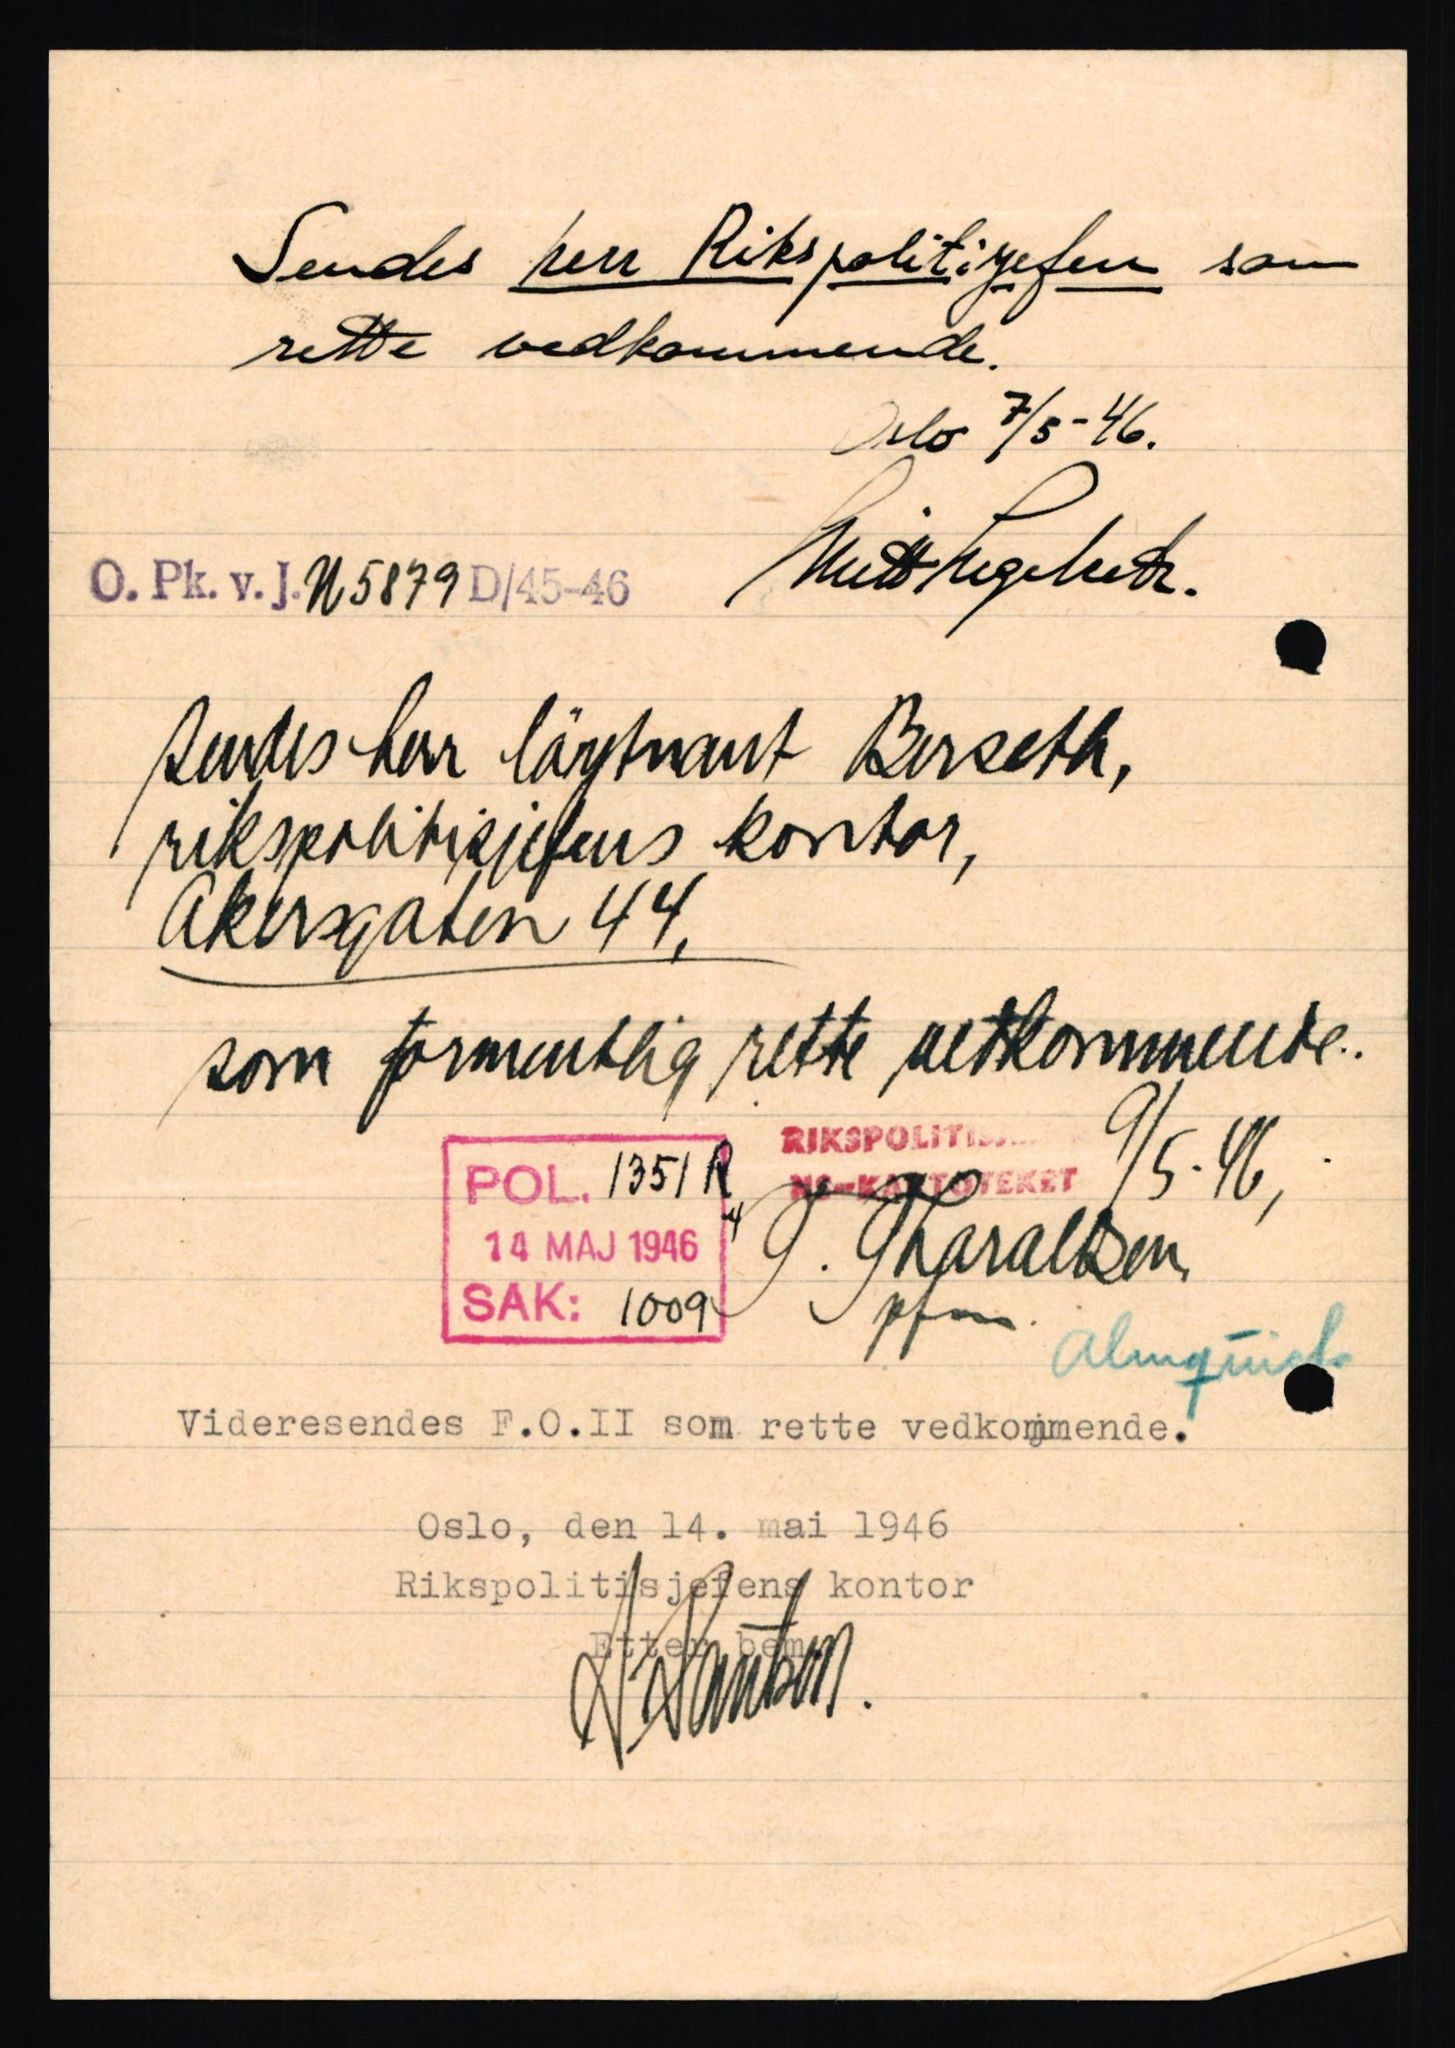 Sendes herr Rikspolitisjefen som
rette vedkommende.
Oslo 7/5-46.
O. Pk. v. J. N 5879 D/45-46
Sendes herr löytnant Berseth,
rikspolitisjefens kontor,
Akersgaten 44,
som formentlig rette vetkommente.
RIKSPOLITISJ
NS-KARTOTEKET
9/5-46,
POL. 1351 R
14 MAJ 1946
SAK: 1009
T. Tharaldsen
pfm.
Almquist
Videresendes F.O.II som rette vedkommende.
Oslo, den 14. mai 1946
Rikspolitisjefens kontor
Etter bem